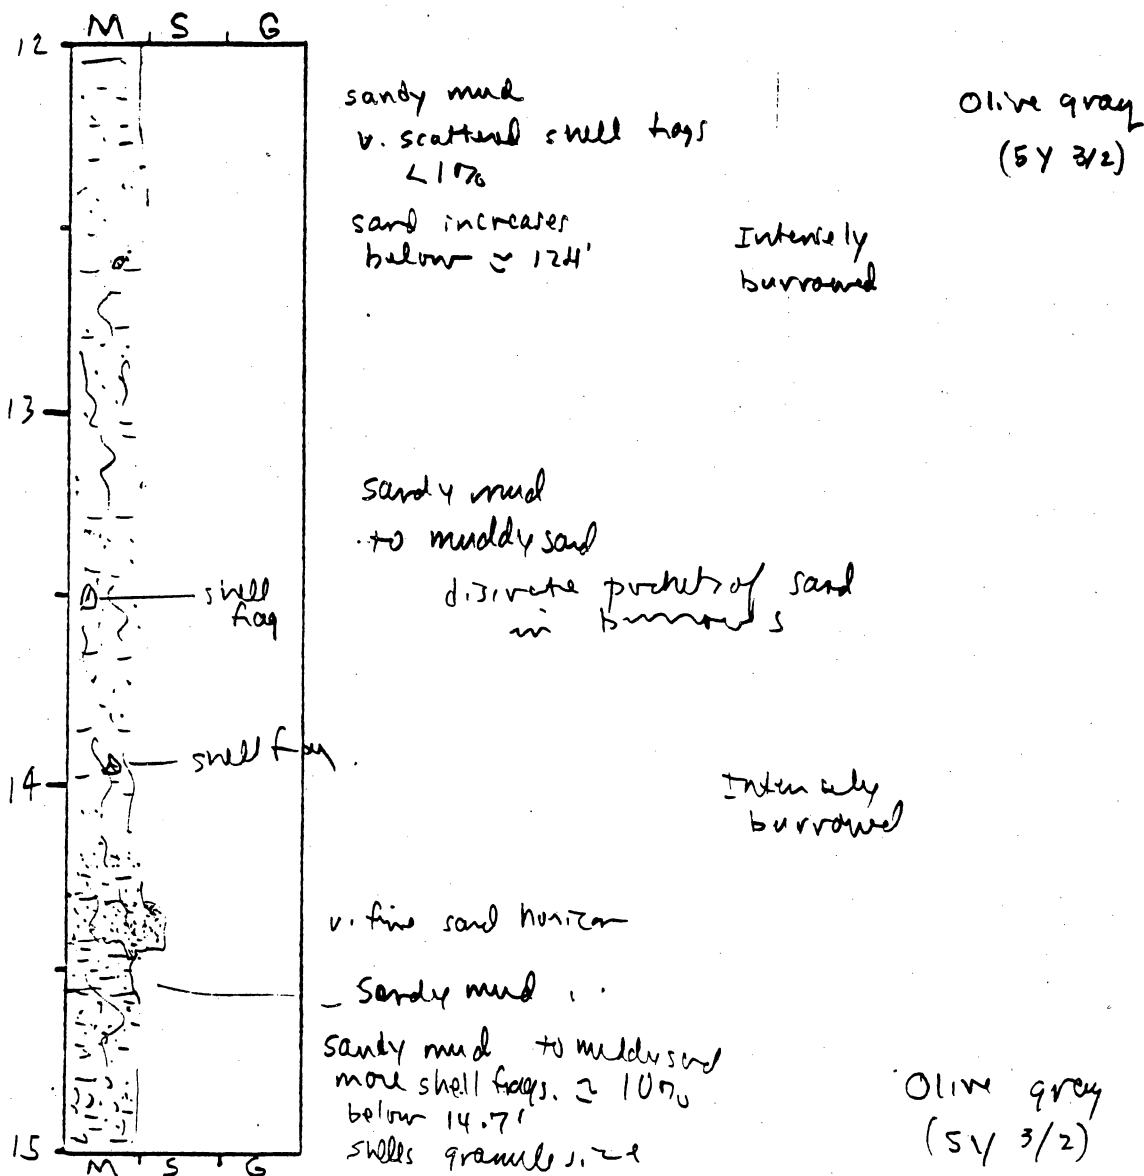 M S G
12
sandy mud
v. scattered shell frags
<1%
Olive gray
(5Y 3/2)
sand increases
below ≃ 124'
Intensely
burrowed
13
sandy mud
to muddy sand
discrete pockets of sand
in burrows
shell
frag
shell frag
14
Intensely
burrowed
v. fine sand horizon
sandy mud
sandy mud to muddy sand
more shell frags. ≃ 10%
below 14.7'
shells granule size
Olive gray
(5Y 3/2)
15
M S G